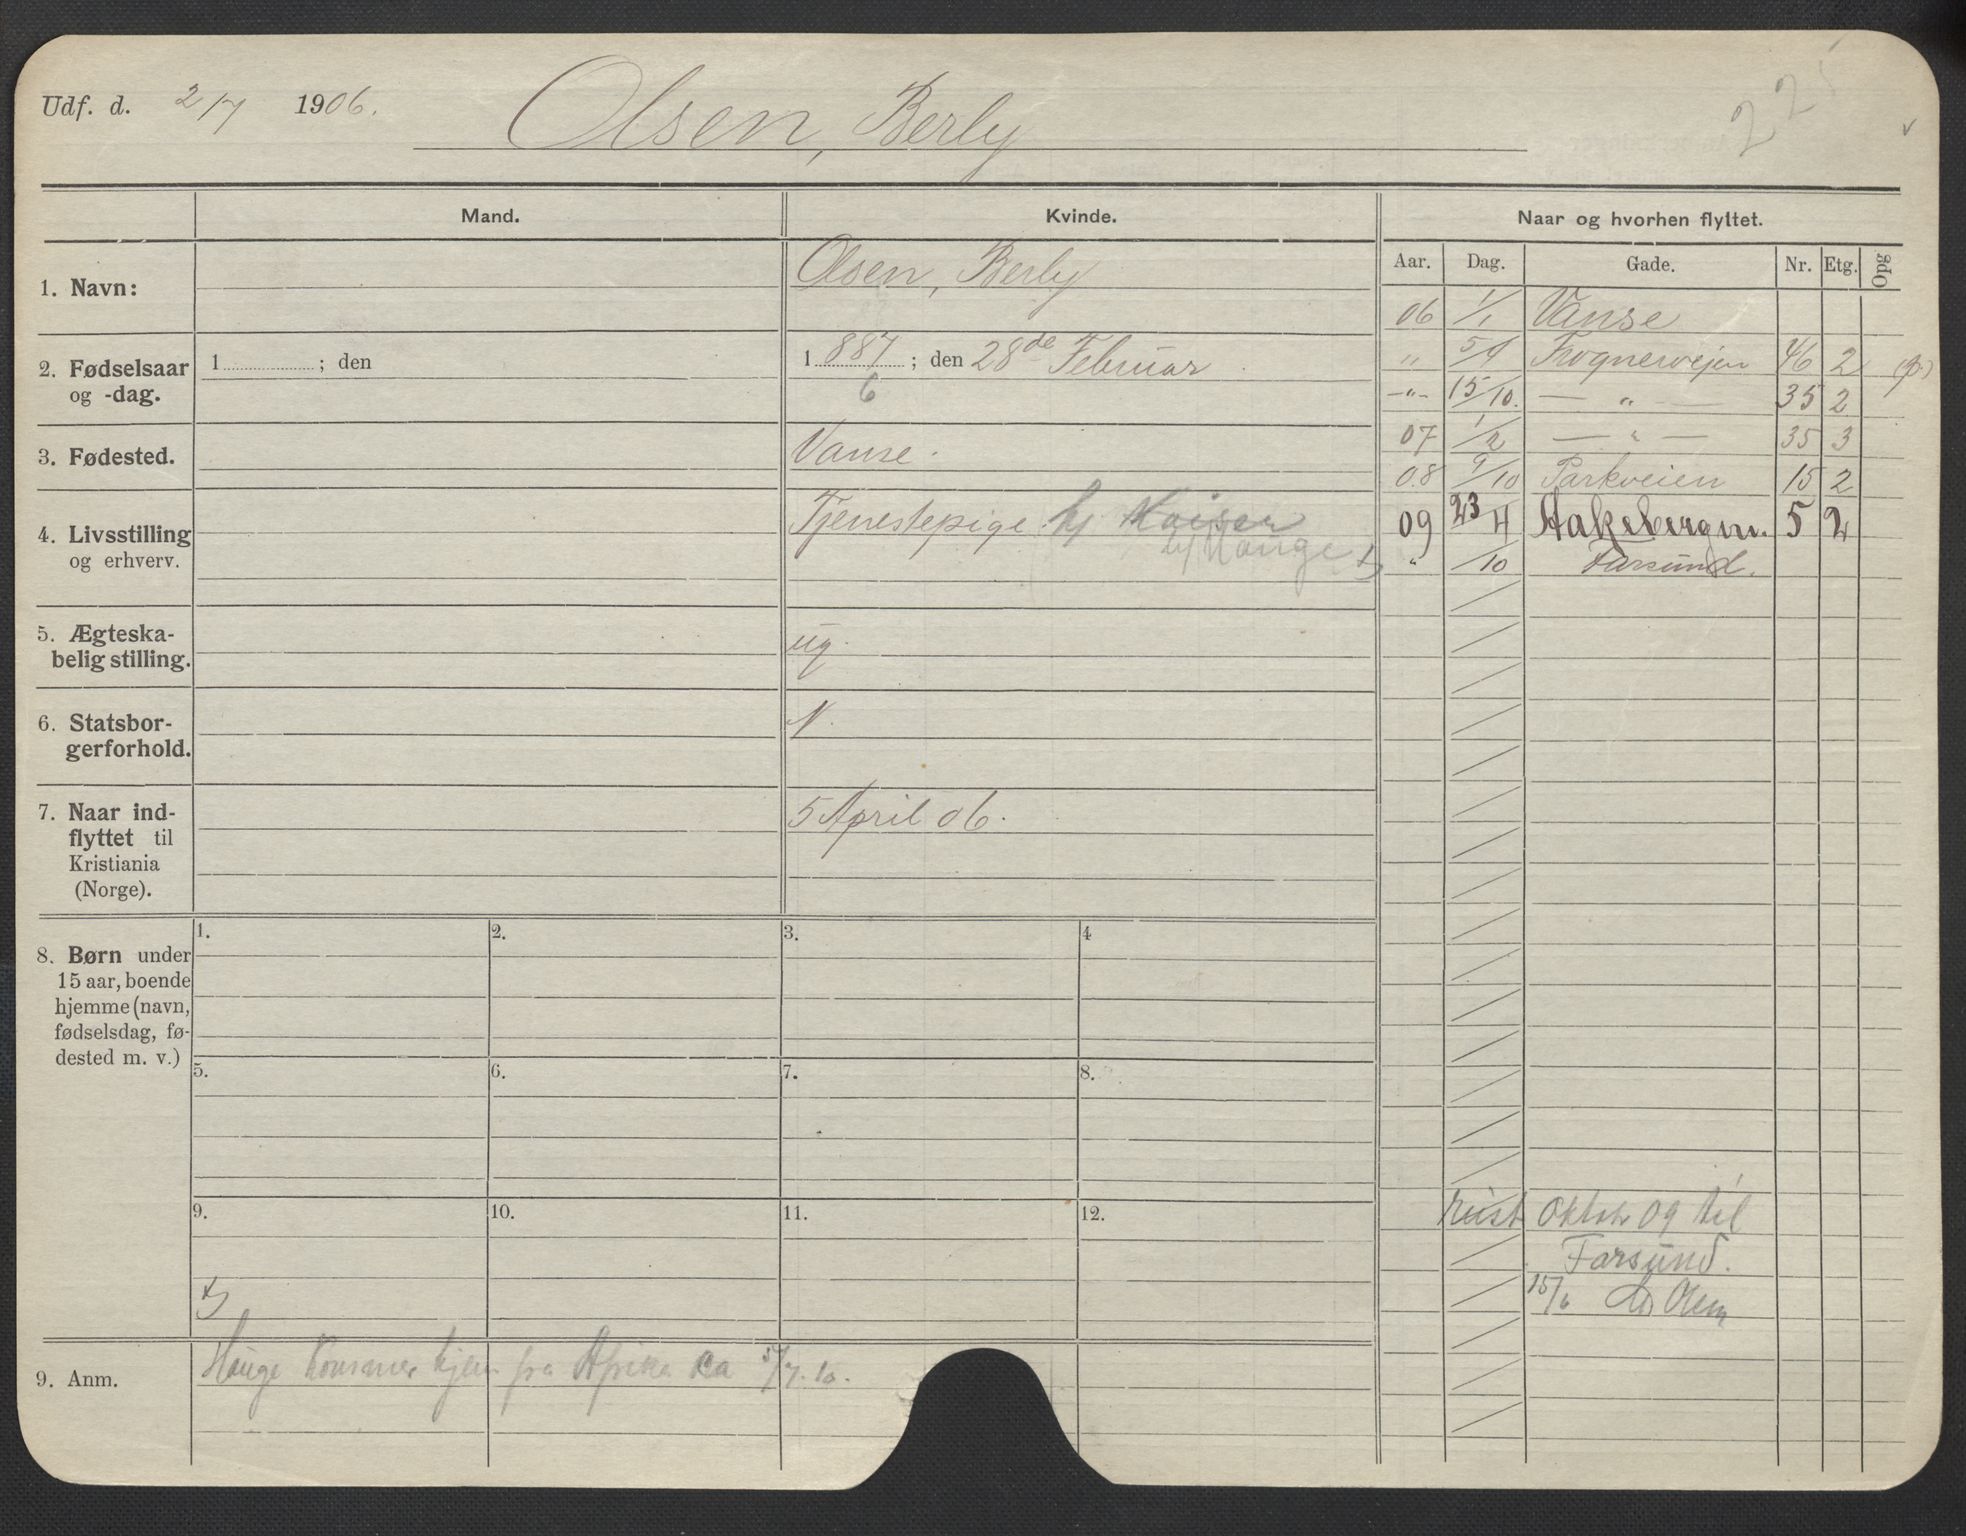 Udf. d. 2/7 1906. Olsen, Berly 22
Mand. Kvinde. Naar og hvorhen flyttet.
Aar. Dag. Gade. Nr. Etg. Opg
1. Navn: Olsen, Berly
2. Fødselsaar og -dag.
1 ; den
1 887 ; den 28de Februar
6
3. Fødested. Vanse.
4. Livsstilling og erhverv. Tjenestepige hj Kaiser
hj Hauge
5. Ægteska-
belig stilling. ug.
6. Statsbor-
gerforhold. N.
7. Naar ind-
flyttet til
Kristiania
(Norge).
5 April 06.
06 1/1 Vanse
" 5/4 Frognervejen 46 2 (p.)
-"- 15/10. — " — 35 2
07 1/2 — " — 35 3
08 9/10 Parkveien 15 2
09 23/4 Aakebergvn. 5 2
" /10 Farsund.
8. Børn under
15 aar, boende
hjemme (navn,
fødselsdag, fø-
dested m. v.)
1. 2. 3. 4
5. 6. 7. 8.
9. 10. 11. 12.
reist Oktobr 09 til
Farsund.
15/6 Olsen
9. Anm. Hauge kommer hjem fra Afrika ca 5/7. 10.